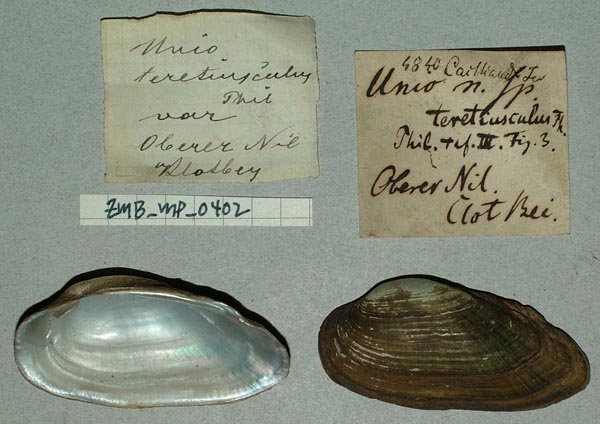 Unio
teretiusculus
Phil
var
Oberer Nil
Klotbey
ZMB_MP_0402
4840 Cailliaudi Fer
Unio n. sp.
teretiusculus Ph.
Phil. tf. III. Fig. 3.
Oberer Nil.
Clot Bei.